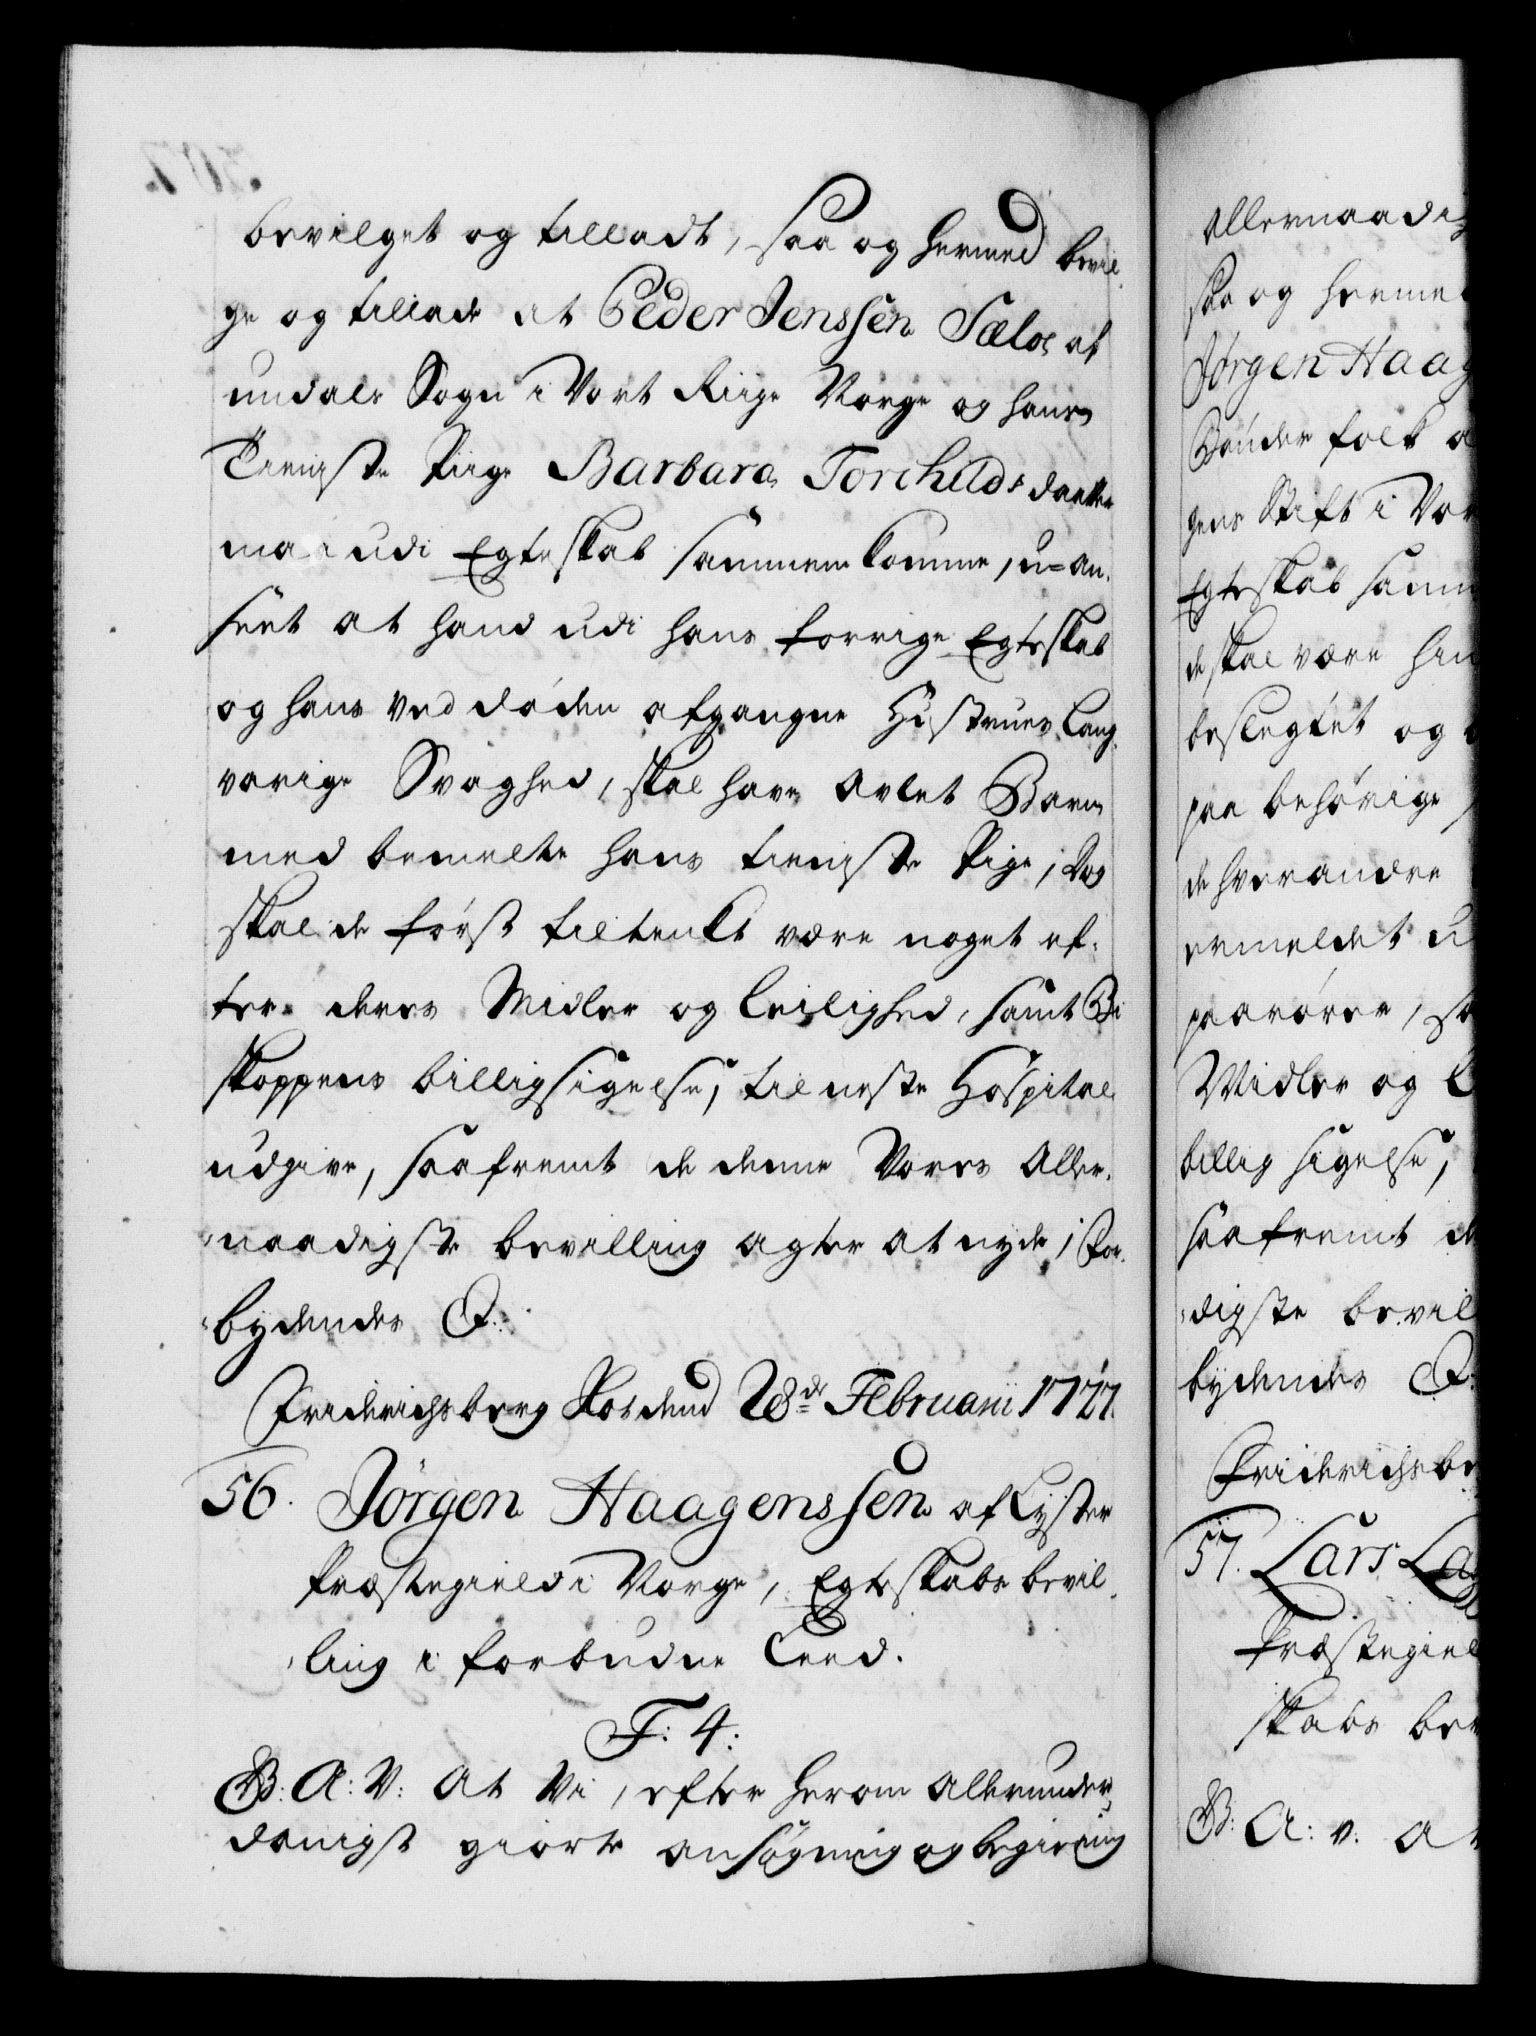 bevilget og tilladt, saa og hermed bevil-
ge og tillade at Peder Jenssen Sæløe af
undals Sogn i Vort Riige Norge og hans
Tieniste Piige Barbara Torchilds daatter
maa udi Egteskab sammen komme, u-an-
seet at hand udi hans forrige Egteskab
og hans ved døden afgangne Hustrues lang-
varige Svaghed, skal have Avlet Barn
med bemelte hans tieniste Pige, Dog
skal de først tiltenkt være noget ef-
ter deres Midler og leilighed, samt Bi
skoppens billigsigelse, til neste Hospital
udgive, saafremt de denne Vores Aller-
naadigste bevilling agter at nyde, For-
bydendes &:
Friderichsberg Slot dend 28de Februarii 1727.
56. Jørgen Haagenssen af Lyster
Præstegield i Norge, Egteskabs bevil-
ling i forbudne Leed.
F: 4:
G: A: V: At Vi, efter herom allerunder-
danigst giorte ansøgning og begiering
Allernaadig
saa og herme
Jørgen Haag
Bønder folk a
gens Stift i Vor
Egteskab samm
de skal være hin
beslegtet og
paa behørige
de hverandre
ermeldet u
paarører, sa
Midler og L
billig sigelse,
saafremt de
digste bevil
bydendes &:
Friderichsbe
57. Lars La
Præstegiel
skabs bev
G: A: V: At